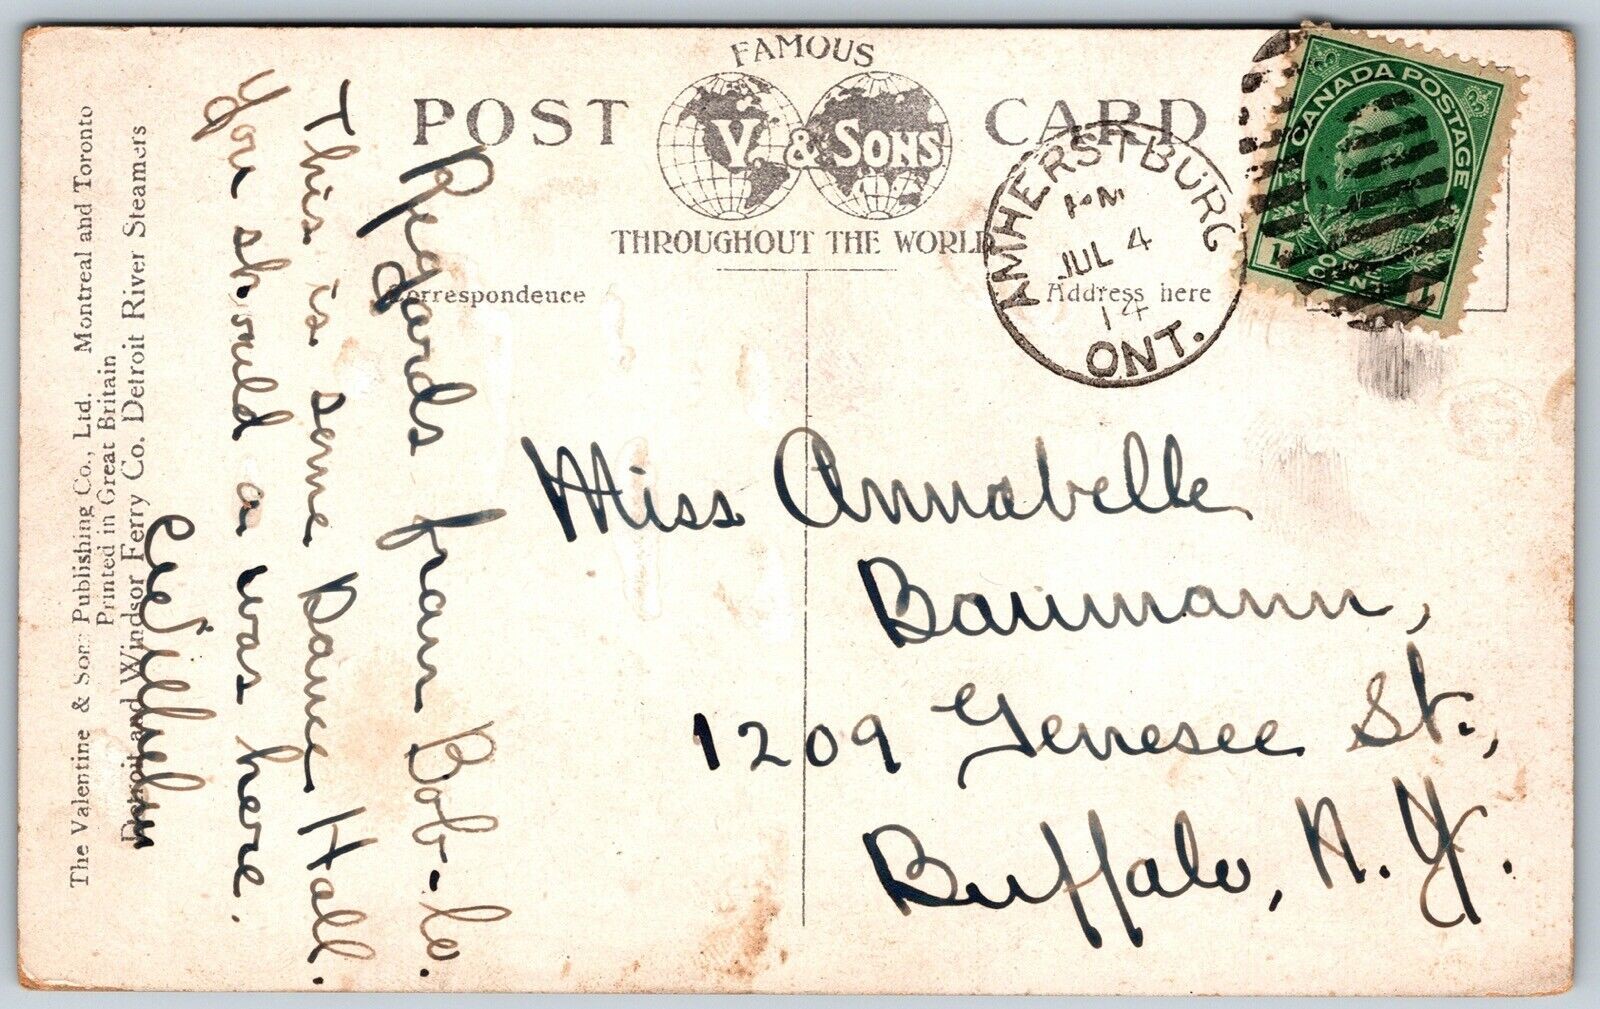 FAMOUS
POST CARD
V. & SONS
THROUGHOUT THE WORLD
Correspondence
Address here
AMHERSTBURG
PM
JUL 4
14
ONT.
CANADA POSTAGE
1 ONE CENT 1
Miss Annabelle
Baumann,
1209 Genesee St.,
Buffalo, N.Y.
Regards from Bob-lo.
This is some Dance Hall.
You should a was here.
The Valentine & Sons Publishing Co., Ltd. Montreal and Toronto
Printed in Great Britain
Detroit and Windsor Ferry Co. Detroit River Steamers